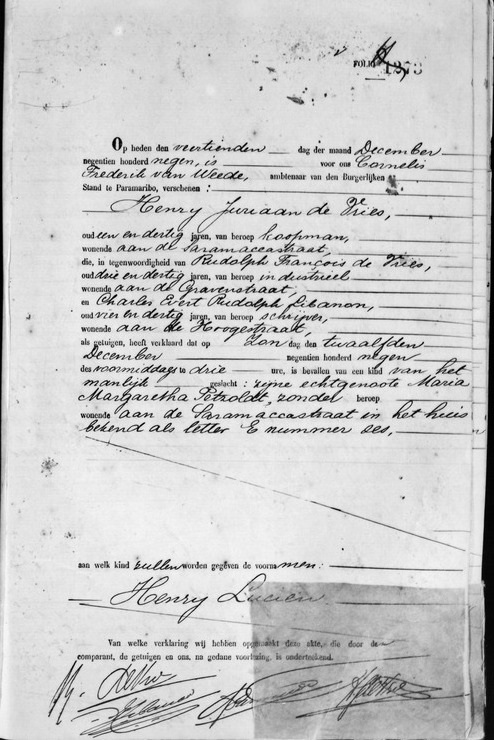 FOLIO 1273
Op heden den veertienden dag der maand December
negentien honderd negen, is voor ons Cornelis
Frederik van Weede, ambtenaar van den Burgerlijken
Stand te Paramaribo, verschenen :
Henry Juriaan de Vries,
oud een en dertig jaren, van beroep koopman,
wonende aan de Saramaccastraat,
die, in tegenwoordigheid van Rudolph François de Vries,
oud drie en dertig jaren, van beroep industrieel
wonende aan de Gravenstraat,
en Charles Evert Rudolph Libanon,
oud vier en dertig jaren, van beroep schrijver,
wonende aan de Hoogestraat,
als getuigen, heeft verklaard dat op Zon dag den twaalfden
December negentien honderd negen
des voormiddags te drie ure, is bevallen van een kind van het
manlijk geslacht : zijne echtgenoote Maria
Margaretha Petzoldt, zonder beroep
wonende aan de Saramaccastraat in het huis
bekend als letter E nummer zes,
aan welk kind zullen worden gegeven de voornamen :
Henry Lucien
Van welke verklaring wij hebben opgemaakt deze akte, die door de
comparant, de getuigen en ons, na gedane voorlezing, is onderteekend.